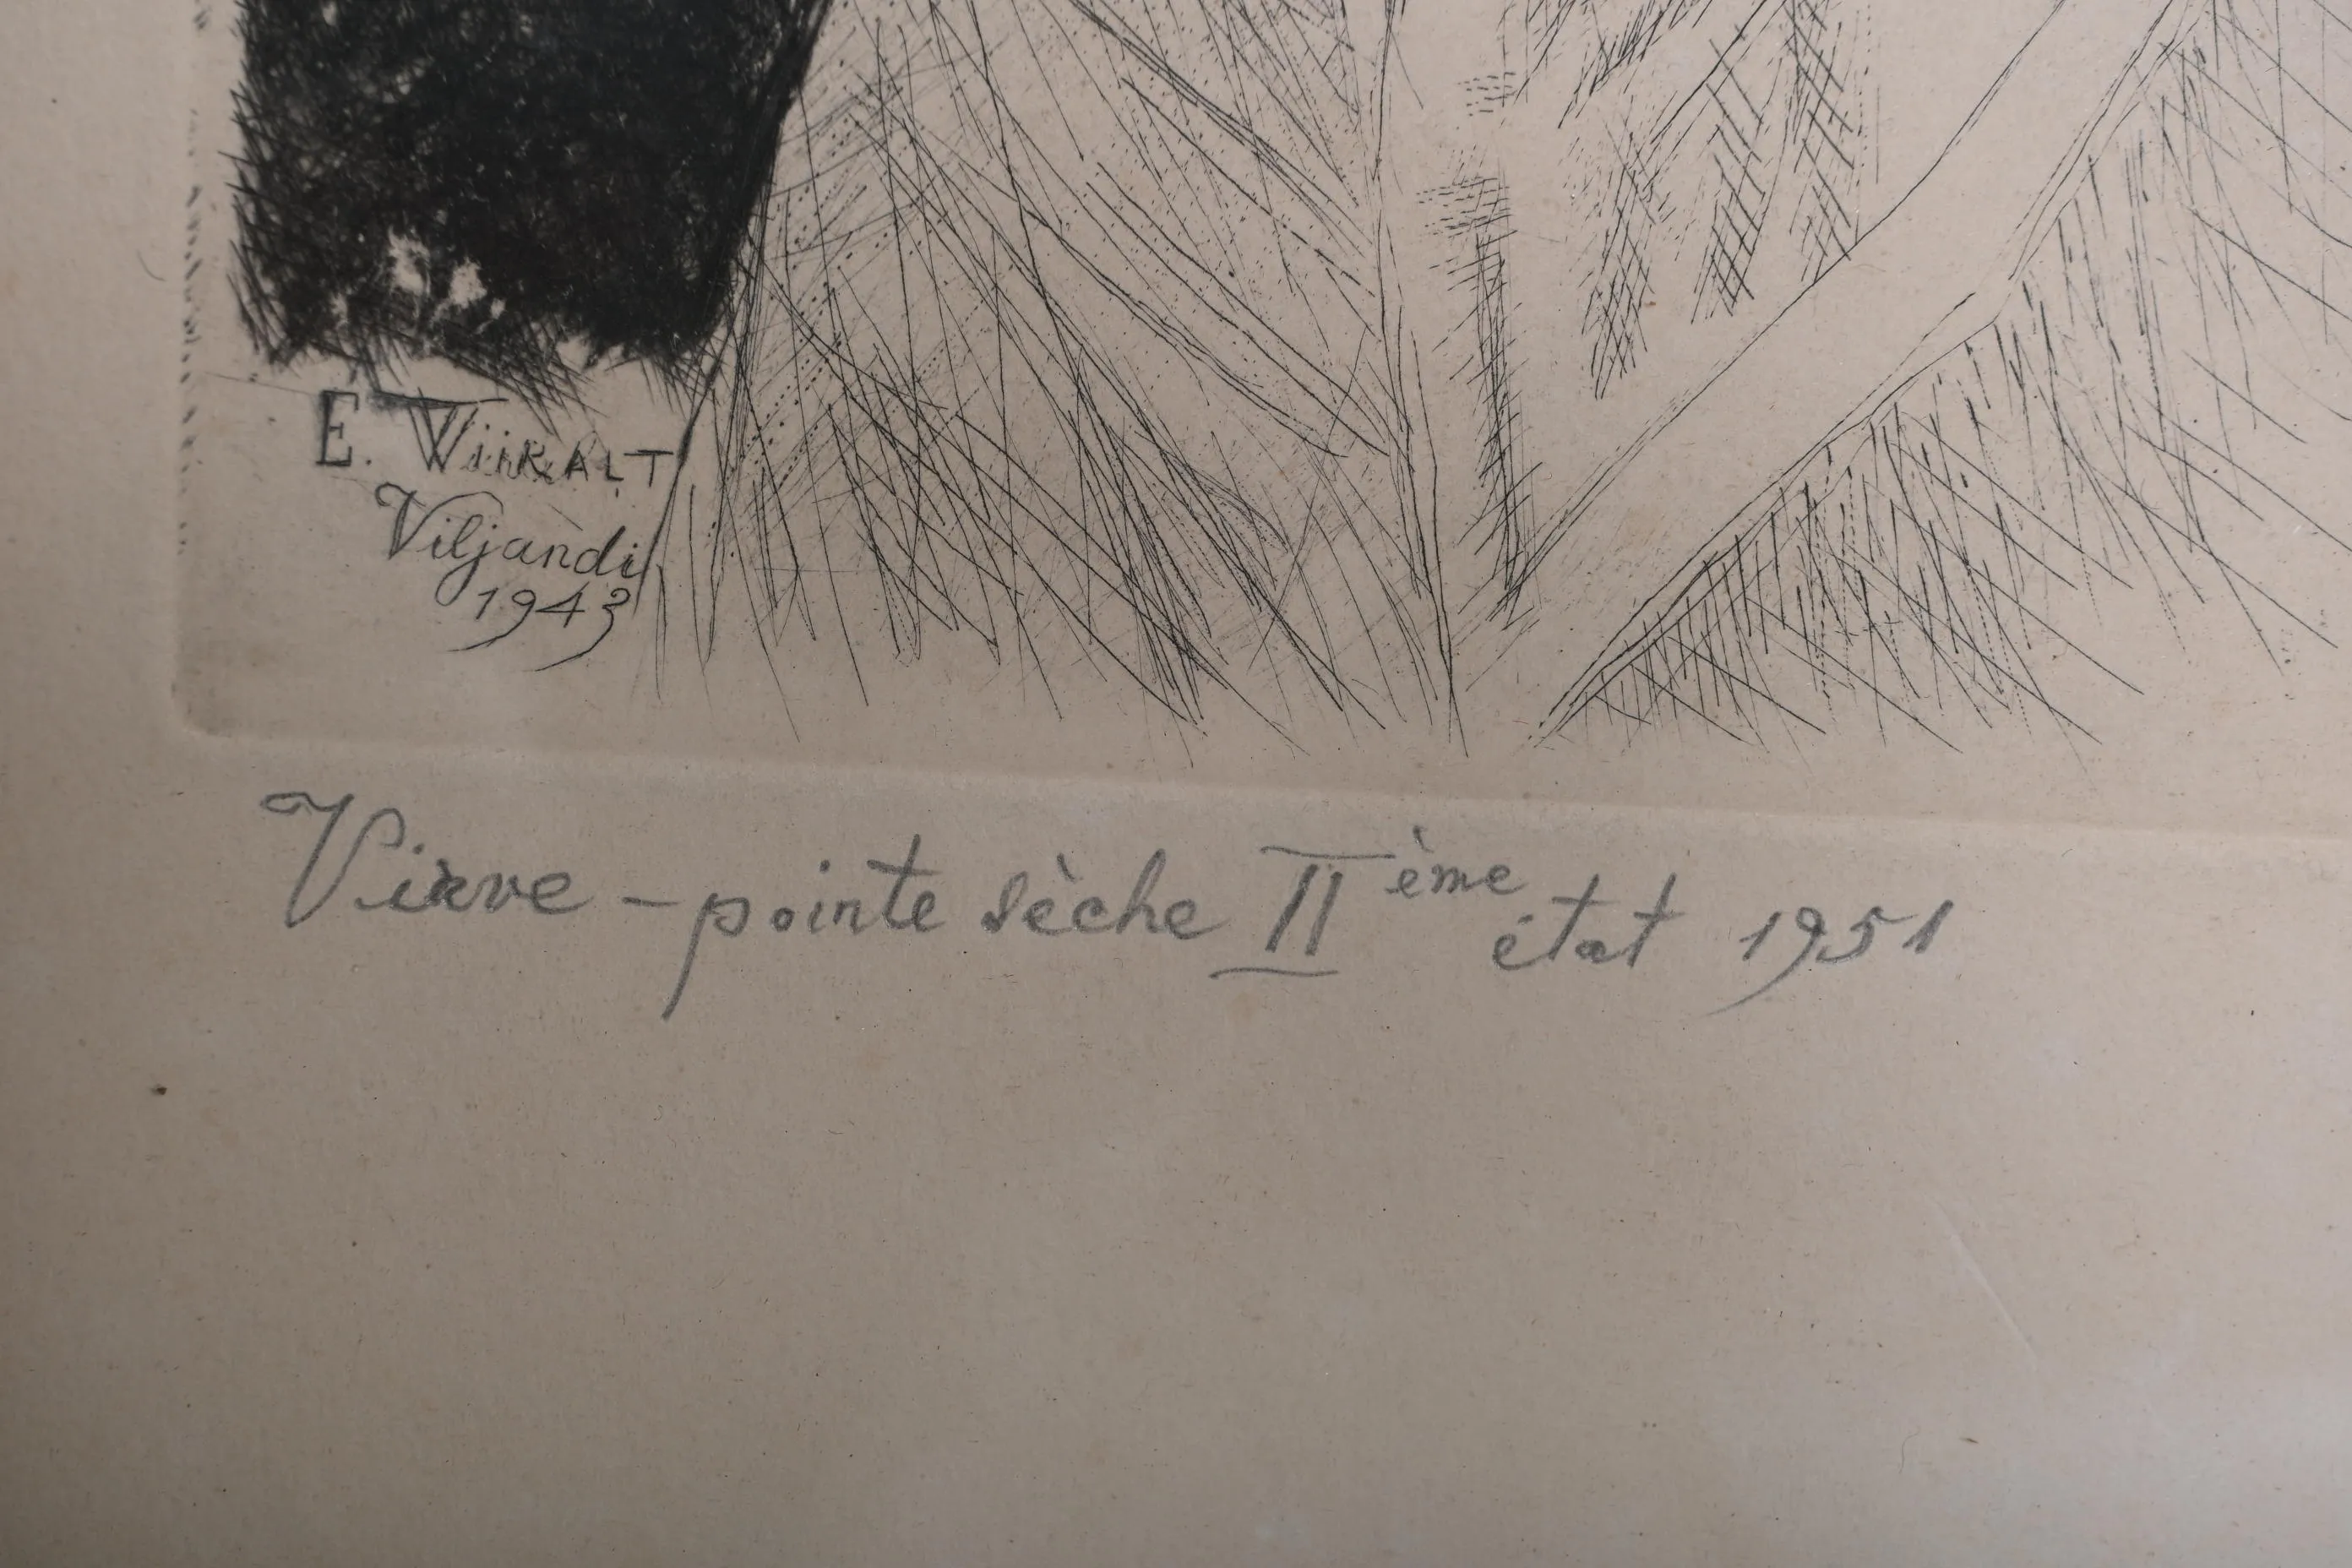 E. WiiRALT
Viljandi
1943
Virve - pointe sèche II ème état 1951